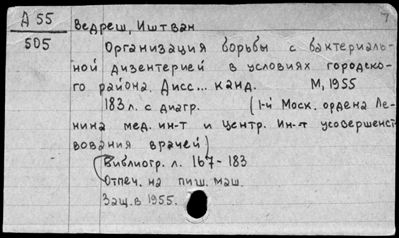 А 55 Ведреш, Иштван 7
505
Организация борьбы с бактериаль-
ной дизентерией в условиях городско-
го района. Дисс... канд. М, 1955
183 л. с диагр. (1-й Моск. ордена Ле-
нина мед. ин-т и Центр. ин-т усовершенст
вования врачей)
(Библиогр. л. 167-183
Отпеч. на пиш. маш.
Защ. в 1955.